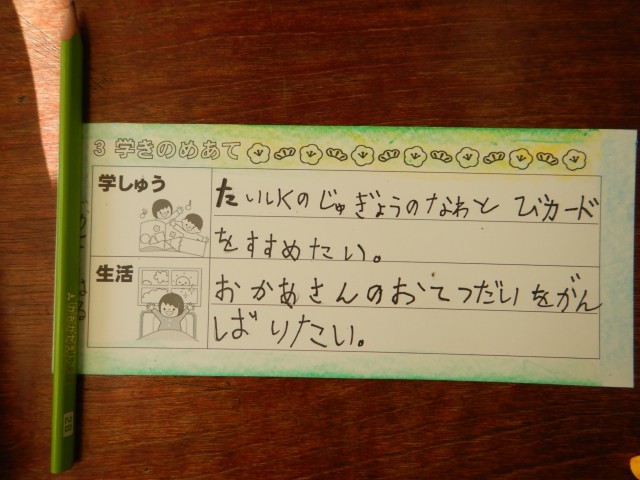 3 学きのめあて
学しゅう
たいいくのじゅぎょうのなわとびカード
をすすめたい。
生活
おかあさんのおてつだいをがん
ばりたい。
2B